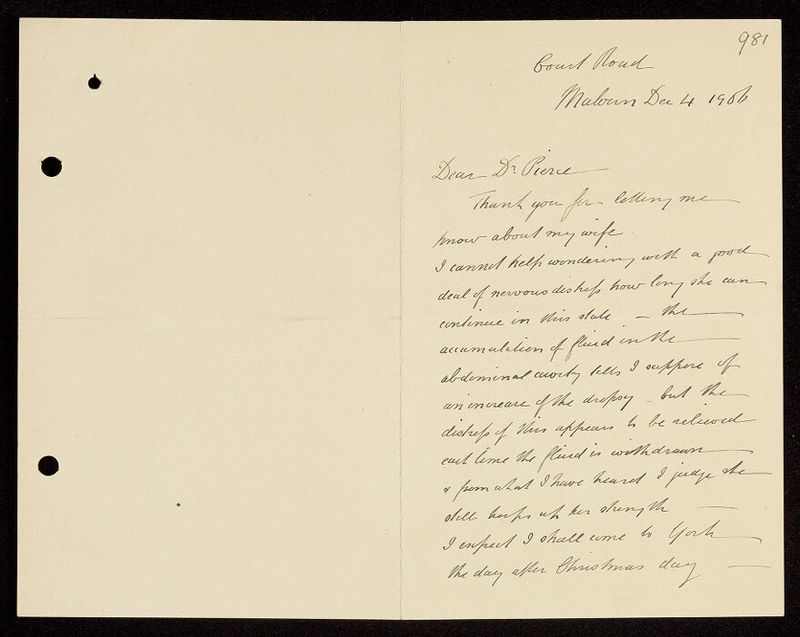 981
Court Road
Malvern Dec 4 1906
Dear Dr. Pierce
Thank you for letting me
know about my wife.
I cannot help wondering with a good
deal of nervous distress how long she can
continue in this state — the
accumulation of fluid in the
abdominal cavity tells I suppose of
an increase of the dropsy – but the
distress of this appears to be relieved
each time the fluid is withdrawn
& from what I have heard I judge she
still keeps up her strength —
I expect I shall come to York
the day after Christmas day —